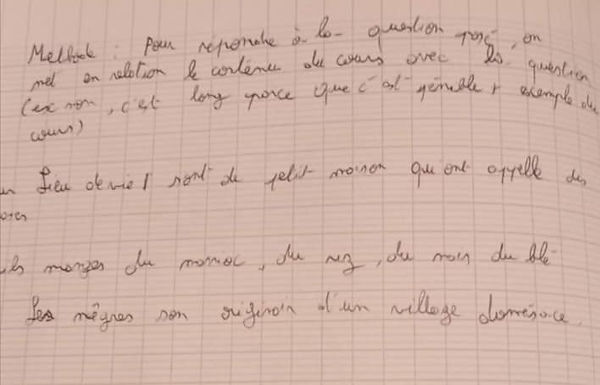 Methode : Pour repondre à la question posé, on
met en relation le contenu du cours avec la question
(ex non, c'est long parce que c'est pénible + exemple du
cours)
Lieu de vie / sont de petit maison qu'ont appelle des
ils manges du manioc, du riz, du maïs du blé
Les nègres son originair d'un village